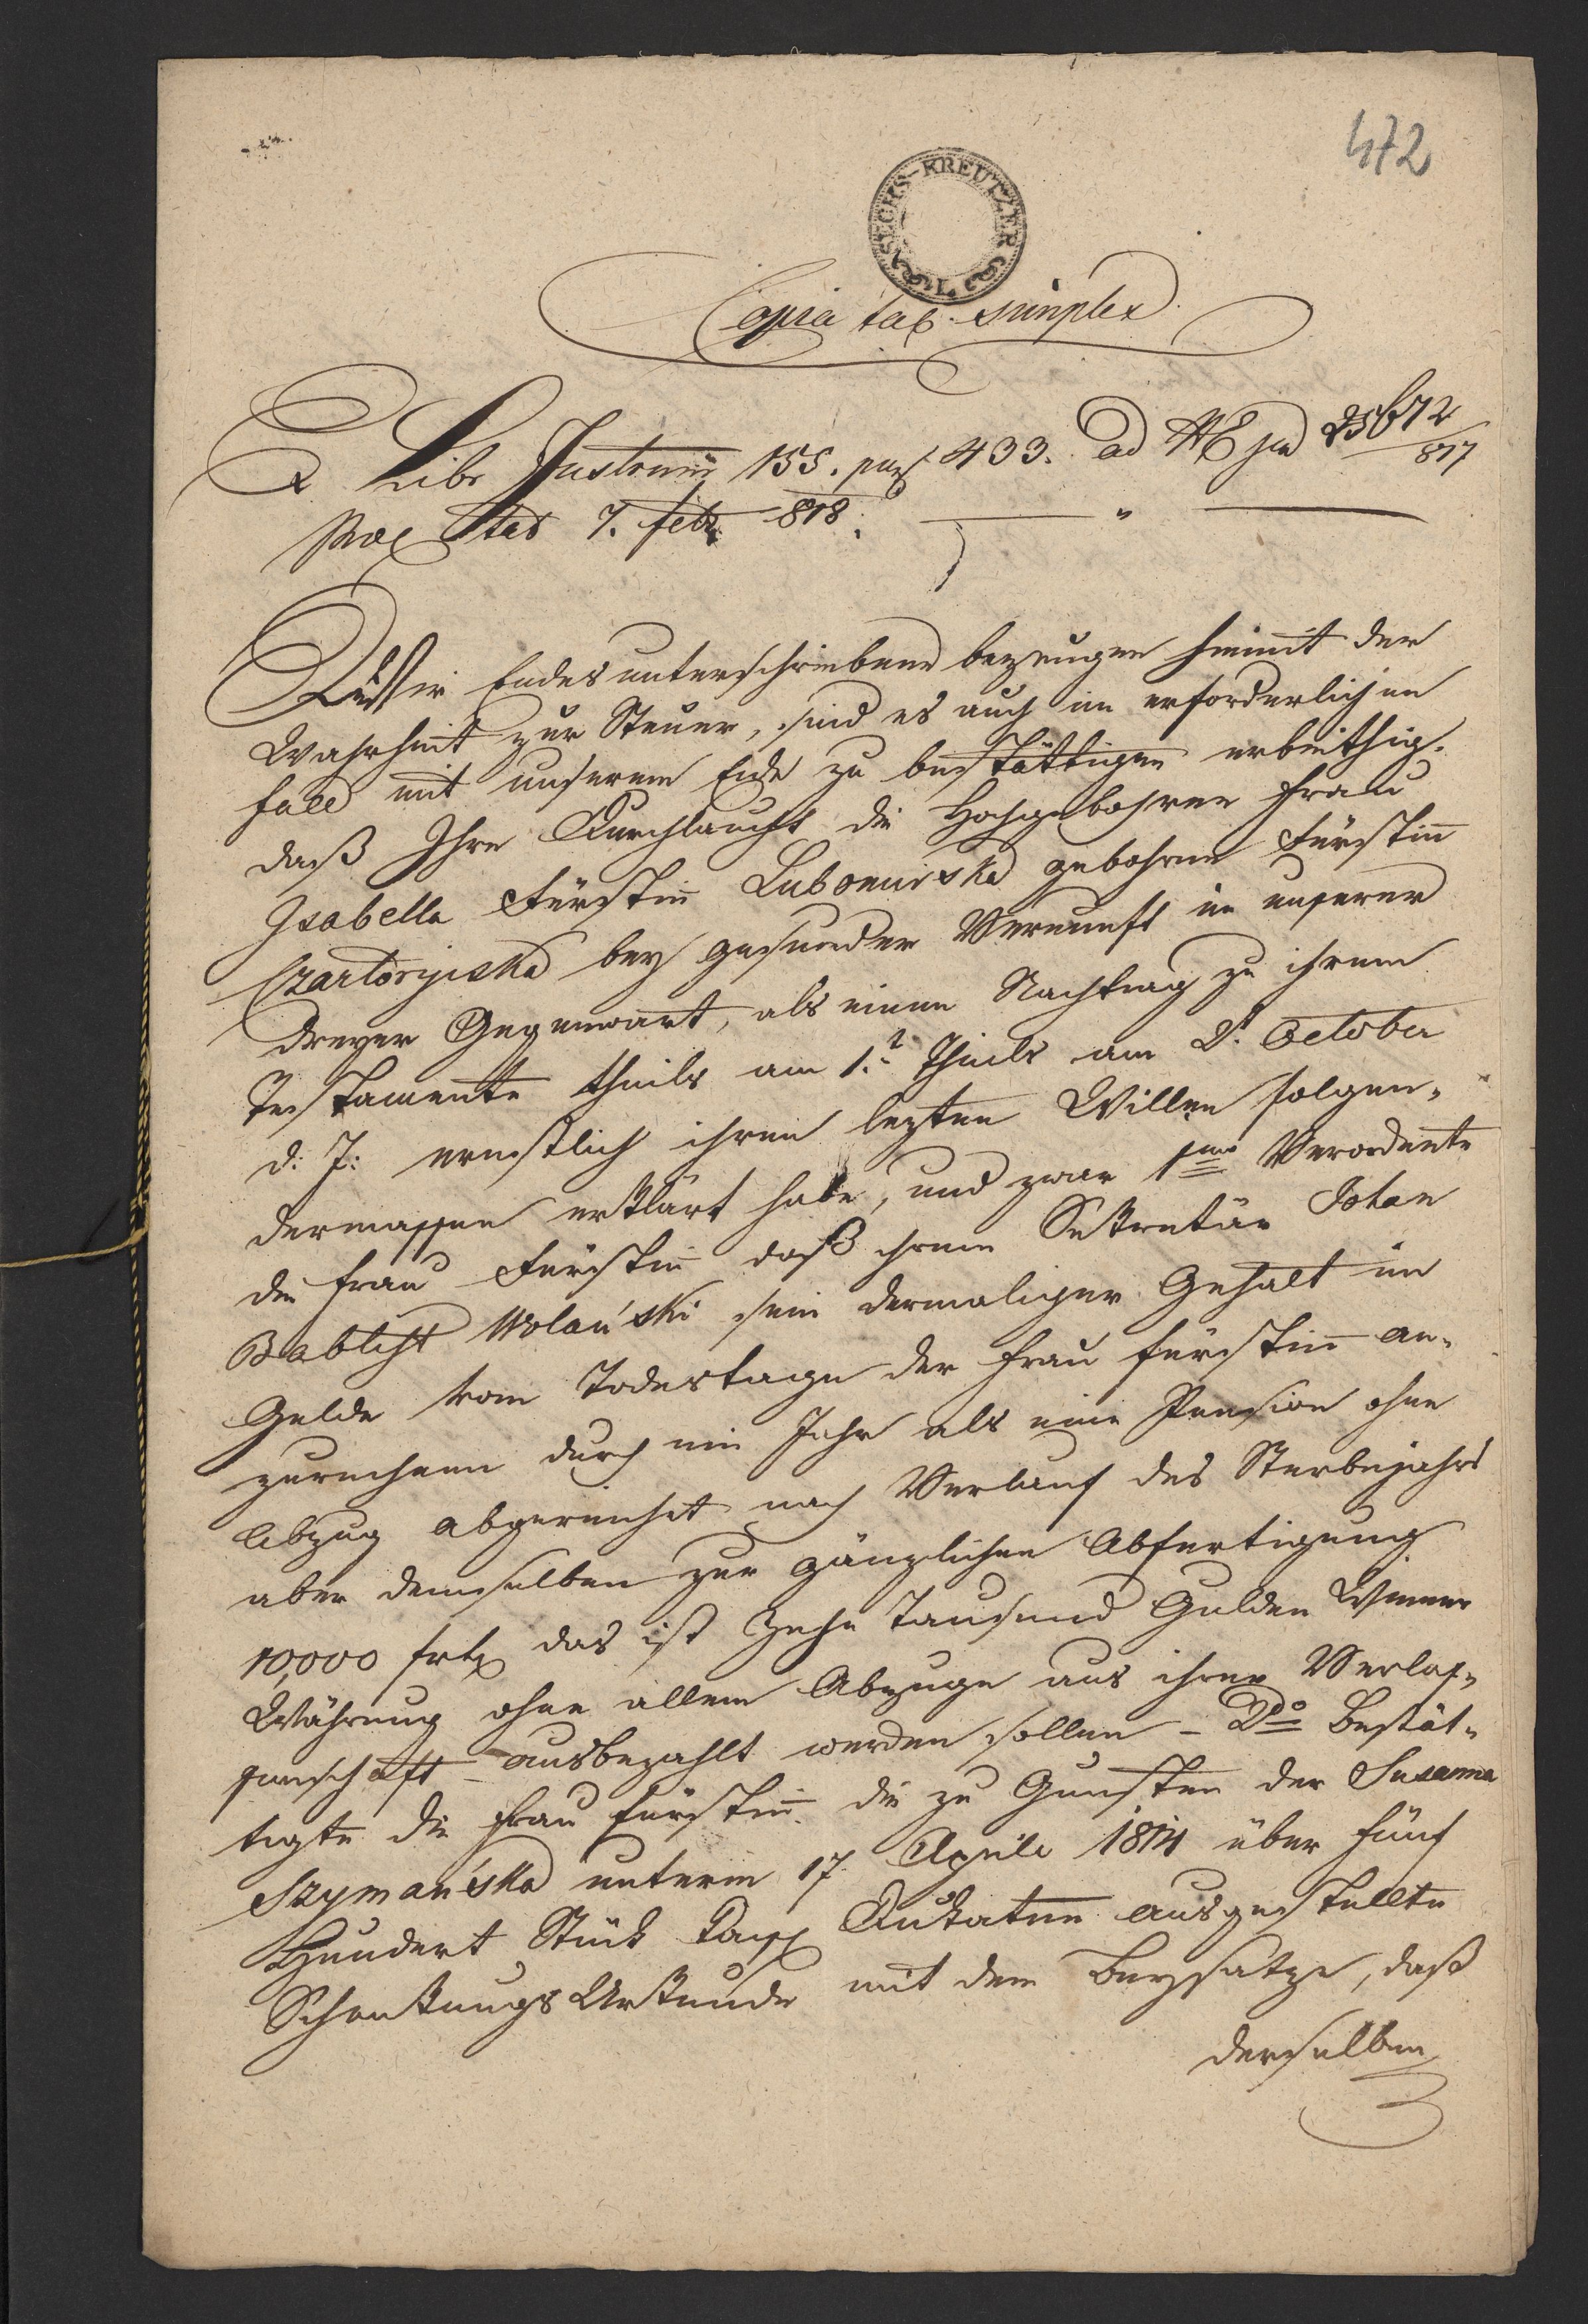 472
SECHS-KREUTZER
Copia tab. simplex
Libr Instrum 155. pag 433. ad NE 25672/817
7. Febr 818.
Wir Endesunterschriebene bezeugen hiemit der
Wahrheit zur Steuer, sind es auch im erforderlichen
Fall mit unserem Eide zu bestättigen erbiethig.
daß Ihre Durchlaucht die Hochgebohrne Frau
Isabella Fürstin̄ Lubomirska gebohrne Fürstin̄
Czartoryiska bey gesunder Vernunft in unserer
dreyer Gegenwart, als einen Nachtrag zu ihrem
Testamente theils am 1.t Theils am 2t October
d: J: ernstlich ihren lezten Willen folgen„
dermassen erklärt habe, und zwar 1mo Verordnete
die Frau Fürstin̄ daß ihrem Sekretär Johan
Babtist Wolański sein dermaliger Gehalt im
Gelde vom Todestage der Frau Fürstin̄ an„
zurechnen durch ein Jahr als eine Pension ohne
Abzug abgereichet nach Verlauf des Sterbejahrs
aber demselben zur gänzlichen Abfertigung
10,000 das ist Zehn Tausend Gulden Wiener
Währung ohne allem Abzuge aus ihrer Verlas„
senschaft ausbezahlt werden sollen – 2do Bestät„
tigte die Frau Fürstin̄ die zu Gunsten der Susanna
Szymańska unterm 17 Aprile 1814 über Fünf
Hundert Stück Dukaten ausgestellte
Schenkungs Urkunde mit dem Beysatze, daß
derselben